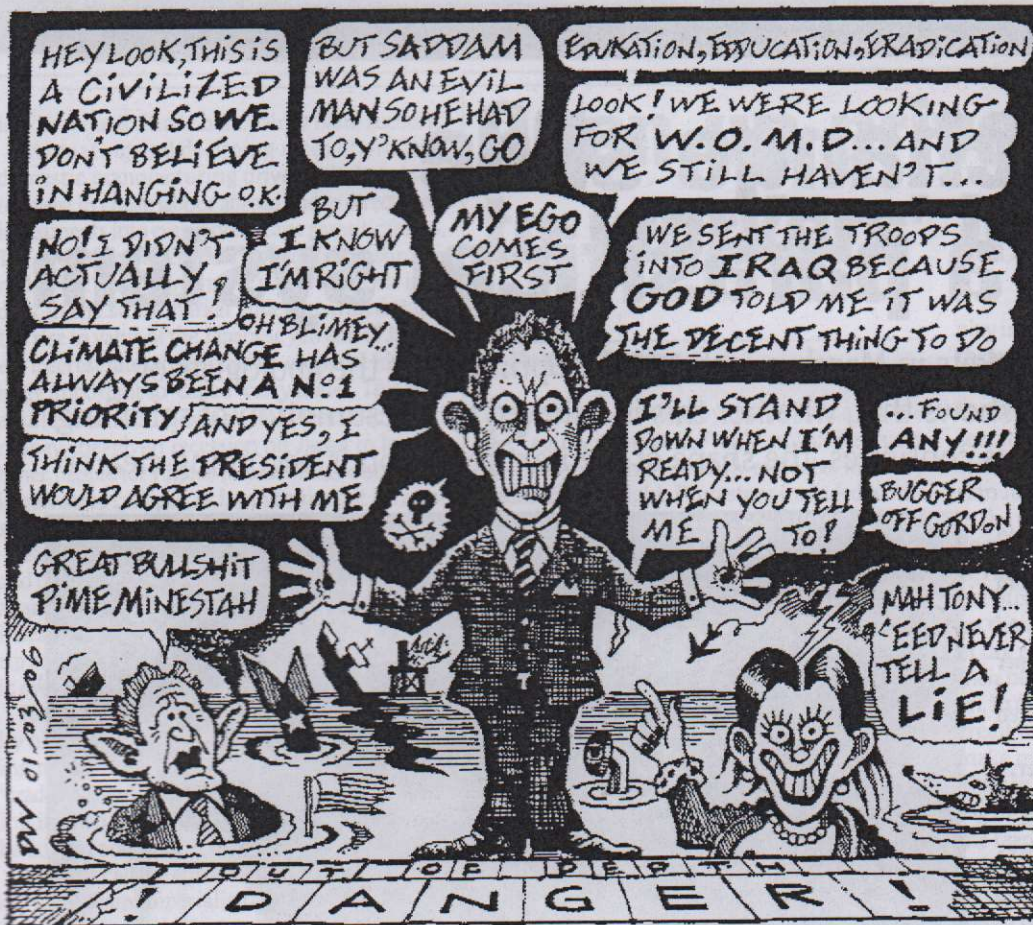 HEY LOOK, THIS IS
A CIVILIZED
NATION SO WE
DON'T BELIEVE
IN HANGING O.K.
BUT SADDAM
WAS AN EVIL
MAN SO HE HAD
TO, Y'KNOW, GO
EDUKATION, EDDUCATION, ERADICATION
LOOK! WE WERE LOOKING
FOR W.O.M.D... AND
WE STILL HAVEN'T...
NO! I DIDN'T
ACTUALLY
SAY THAT!
BUT
I KNOW
I'M RIGHT
MY EGO
COMES
FIRST
WE SENT THE TROOPS
INTO IRAQ BECAUSE
GOD TOLD ME IT WAS
THE DECENT THING TO DO
OH BLIMEY...
CLIMATE CHANGE HAS
ALWAYS BEEN A Nº1
PRIORITY
AND YES, I
THINK THE PRESIDENT
WOULD AGREE WITH ME
I'LL STAND
DOWN WHEN I'M
READY... NOT
WHEN YOU TELL
ME TO!
...FOUND
ANY!!!
BUGGER
OFF GORDON
GREAT BULLSHIT
PIME MINESTAH
MAH TONY...
'EED NEVER
TELL A
LIE!
DW 10/03/06
! OUT OF DEPTH
! DANGER!